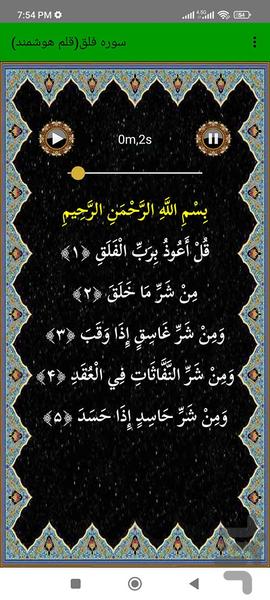 7:54 PM
4.5G
54
سوره فلق(قلم هوشمند)
0m,2s
بِسْمِ اللَّهِ الرَّحْمَنِ الرَّحِيمِ
قُلْ أَعُوذُ بِرَبِّ الْفَلَقِ ﴿۱﴾
مِنْ شَرِّ مَا خَلَقَ ﴿۲﴾
وَمِنْ شَرِّ غَاسِقٍ إِذَا وَقَبَ ﴿۳﴾
وَمِنْ شَرِّ النَّفَّاثَاتِ فِي الْعُقَدِ ﴿۴﴾
وَمِنْ شَرِّ حَاسِدٍ إِذَا حَسَدَ ﴿۵﴾